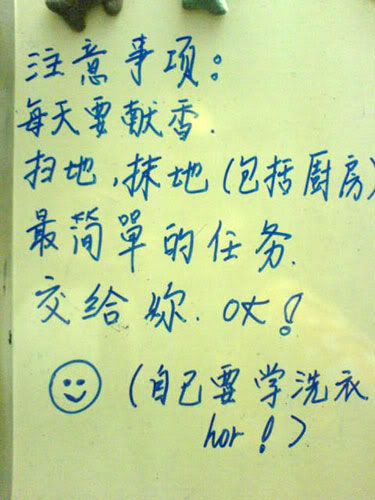 注意事项：
每天要献香.
扫地，抹地(包括厨房)
最简單的任务.
交给你. OK!
(自己要学洗衣
hor!)